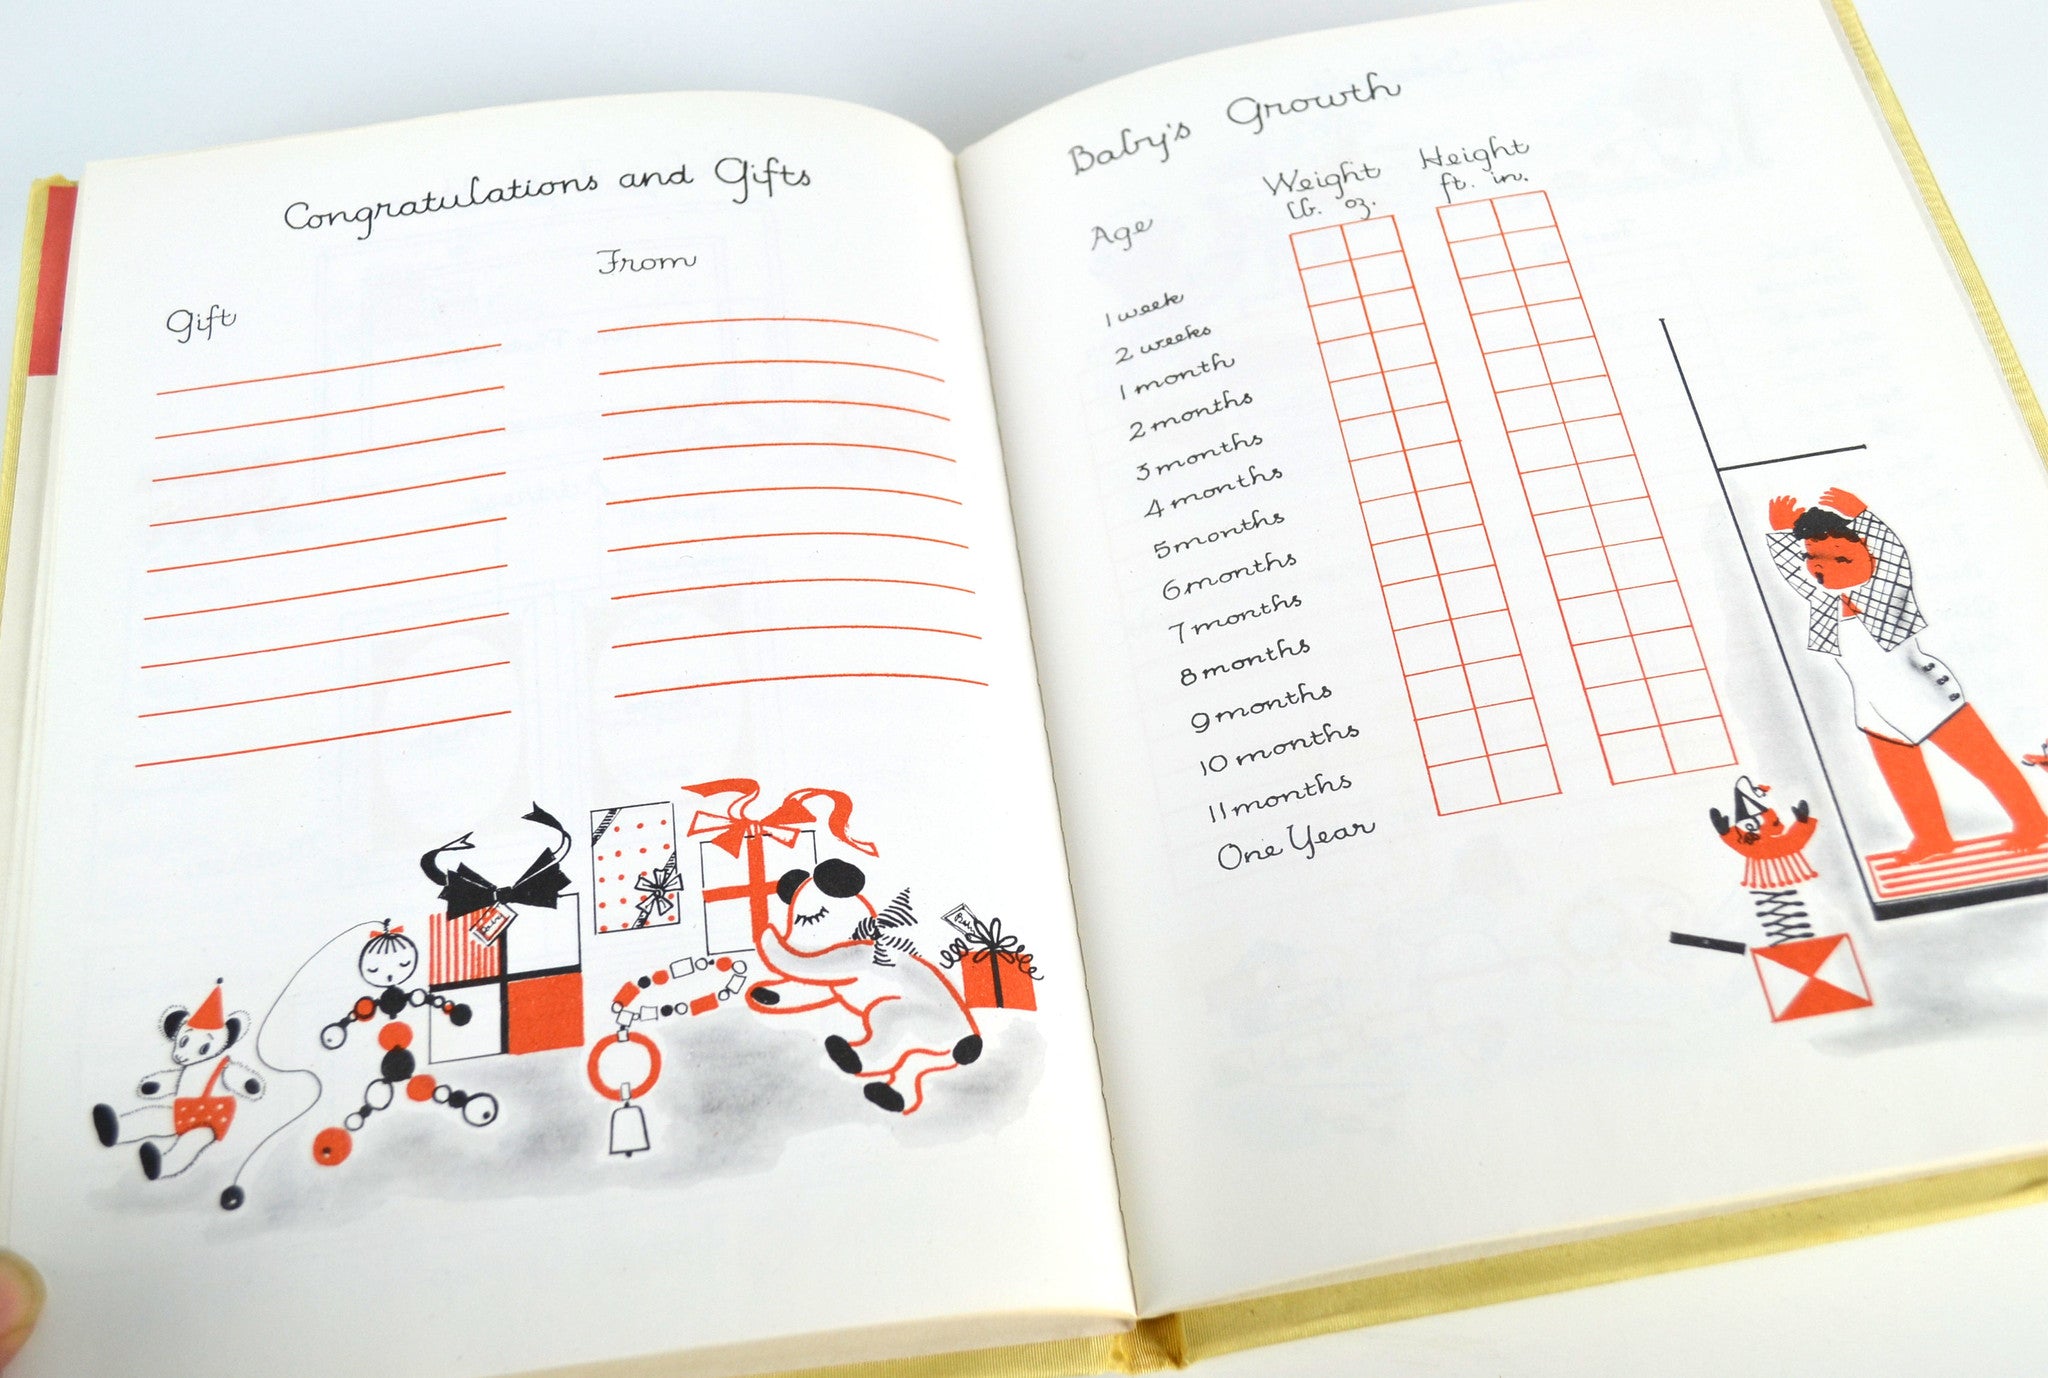 Congratulations and Gifts
Gift
From
Baby
Baby's Growth
Age
Weight
lb. oz.
Height
ft. in.
1 week
2 weeks
1 month
2 months
3 months
4 months
5 months
6 months
7 months
8 months
9 months
10 months
11 months
One Year